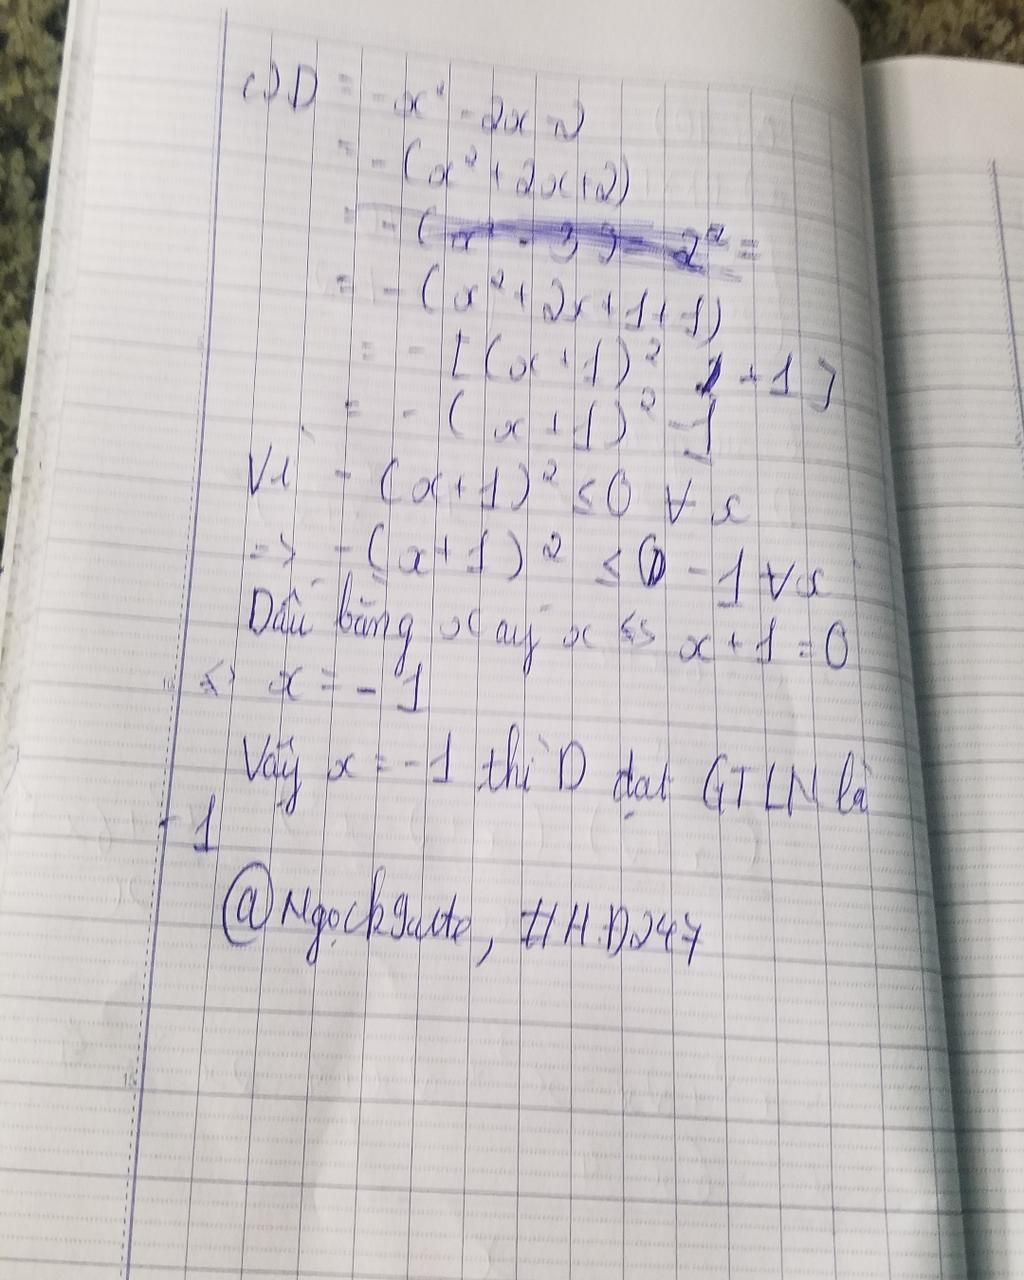 c) D = -x² - 2x - 2
= -(x² + 2x + 2)
= -(x² + 2x + 1 + 1)
= -[(x + 1)² + 1]
= -(x + 1)² - 1
Vì -(x + 1)² ≤ 0 ∀ x
=> -(x + 1)² ≤ 0 - 1 ∀ x
Dấu bằng xảy x <=> x + 1 = 0
<=> x = -1
Vậy x = -1 thì D đạt GTLN là
-1
@Ngọckguute, #H.D247